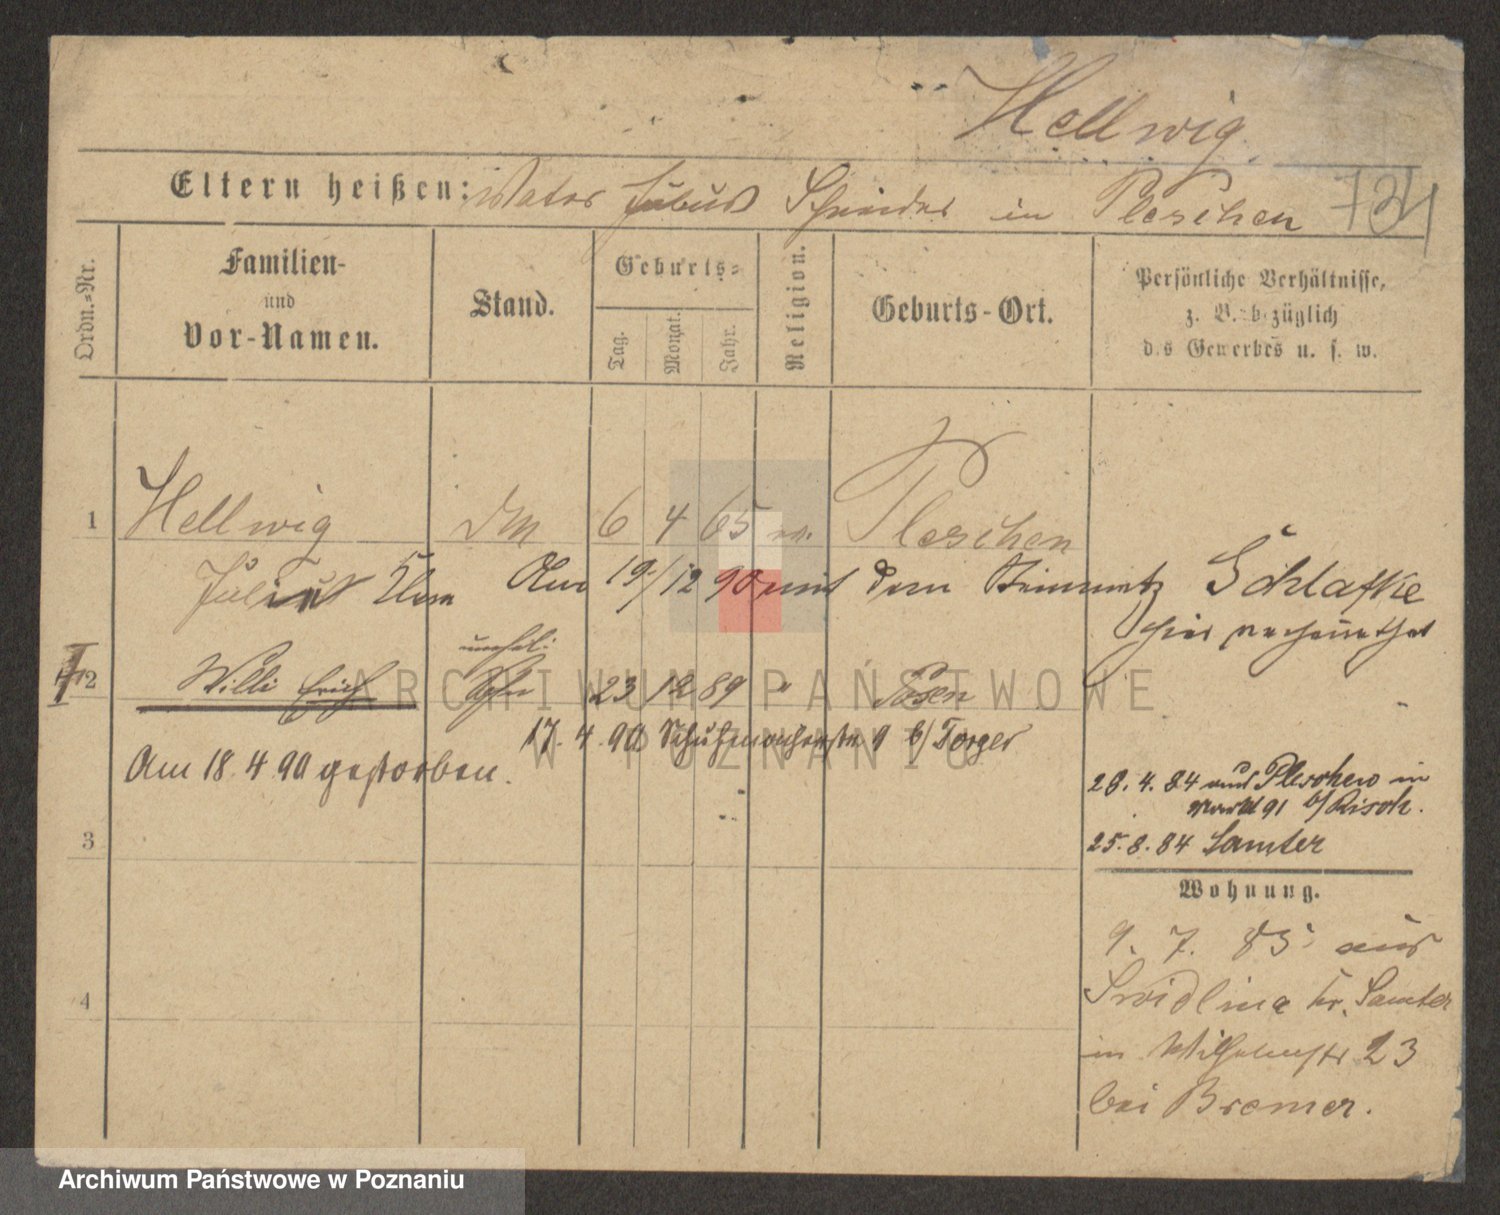 Hellwig.
Eltern heißen: Vater Julius Schneider in Pleschen
734
Ordn.=Nr.
Familien-
und
Vor-Namen.
Stand.
Geburts=
Tag.
Monat.
Jahr.
Religion.
Geburts-Ort.
Persönliche Verhältnisse,
z. B. bezüglich
des Gewerbes u. s. w.
1 Hellwig DM 6 4 65 Pleschen
Am 19/12 90 mit dem Steinmetz Schlafke
hier verheirathet
unehel.
2 Willi Erich Sohn 23 12 89 " Posen
17. 4. 90 Schuhmacherstr. 9 b/ Torger
Am 18. 4 90 gestorben.
28. 4. 84 aus Pleschen in
Markt 91 b/ Risch.
3
25. 8. 84 Samter
Wohnung.
9. 7. 85 aus
4
Kr. Samter
in Wilhelmstr 23
bei Bremer.
ARCHIWUM PAŃSTWOWE
W POZNANIU
Archiwum Państwowe w Poznaniu